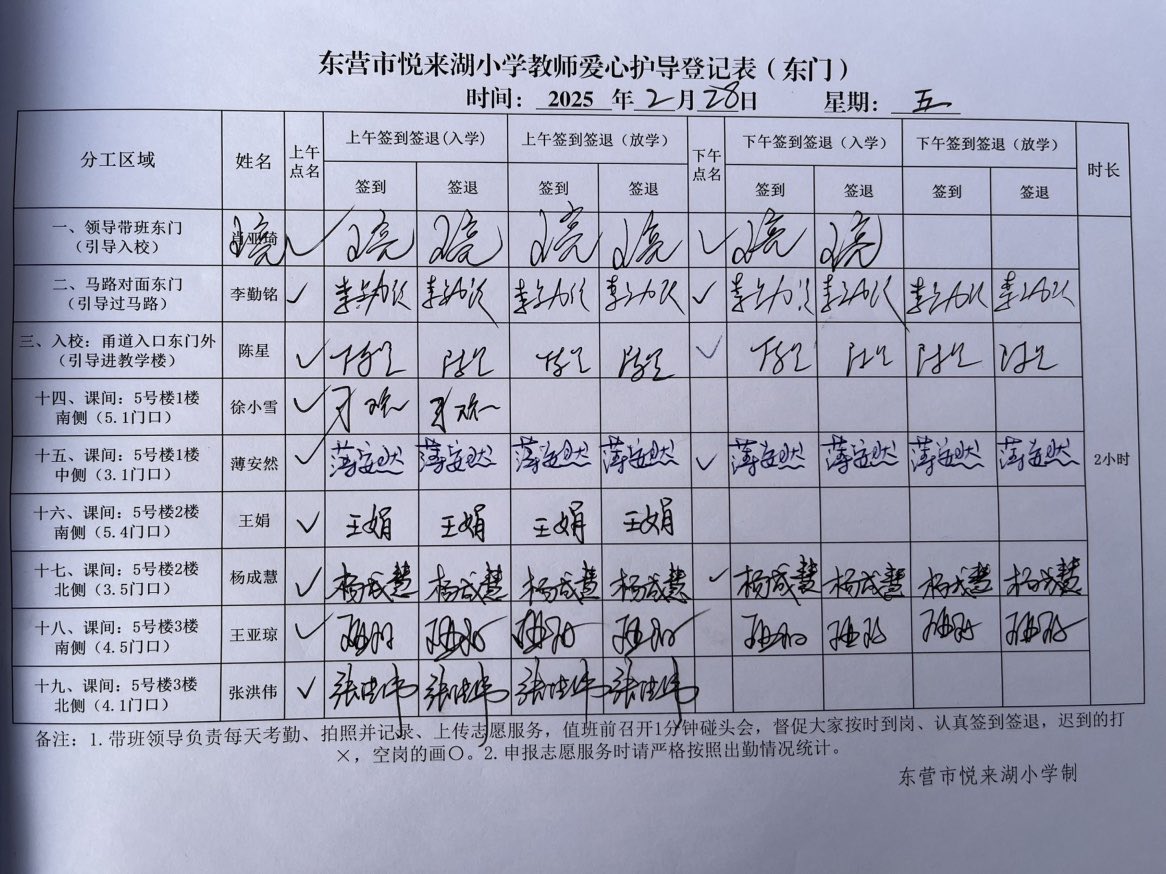 东营市悦来湖小学教师爱心护导登记表（东门）
时间： 2025 年 2 月 28 日 星期： 五
分工区域 姓名 上午点名 上午签到签退(入学) 上午签到签退（放学） 下午点名 下午签到签退（入学） 下午签到签退（放学） 时长
签到 签退 签到 签退 签到 签退 签到 签退
一、领导带班东门
（引导入校）
肖亚琦 ✓ ✓
二、马路对面东门
（引导过马路）
李勤铭 ✓ ✓
三、入校：甬道入口东门外
（引导进教学楼）
陈星 ✓ 陈星 陈星 陈星 陈星 ✓ 陈星 陈星 陈星 陈星
十四、课间：5号楼1楼
南侧（5.1门口）
徐小雪 ✓
十五、课间：5号楼1楼
中侧（3.1门口）
薄安然 ✓ 薄安然 薄安然 薄安然 薄安然 ✓ 薄安然 薄安然 薄安然 薄安然
2小时
十六、课间：5号楼2楼
南侧（5.4门口）
王娟 ✓ 王娟 王娟 王娟 王娟
十七、课间：5号楼2楼
北侧（3.5门口）
杨成慧 ✓ 杨成慧 杨成慧 杨成慧 杨成慧 ✓ 杨成慧 杨成慧 杨成慧 杨成慧
十八、课间：5号楼3楼
南侧（4.5门口）
王亚琼 ✓
十九、课间：5号楼3楼
北侧（4.1门口）
张洪伟 ✓ 张洪伟 张洪伟 张洪伟 张洪伟
备注：1.带班领导负责每天考勤、拍照并记录、上传志愿服务，值班前召开1分钟碰头会，督促大家按时到岗、认真签到签退，迟到的打
×，空岗的画〇。2.申报志愿服务时请严格按照出勤情况统计。
东营市悦来湖小学制